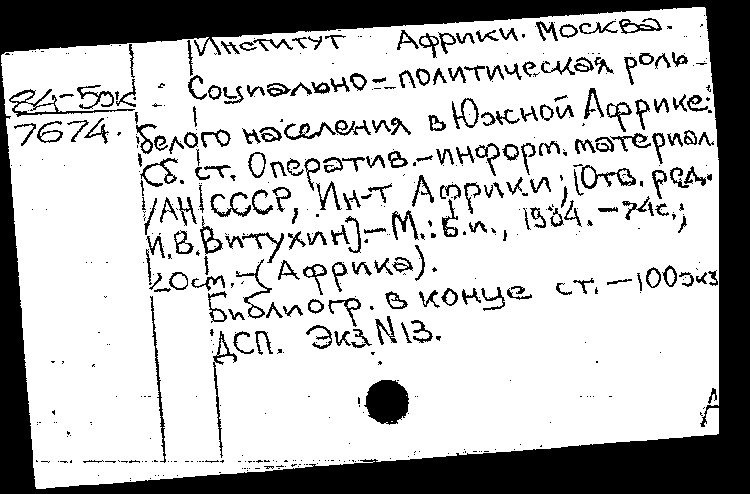 Институт Африки. Москва.
84-5ок
7674.
Социально-политическая роль
белого населения в Южной Африке:
Сб. ст. Оператив.-информ. материал.
/АН СССР, Ин-т Африки; [Отв. ред.
И.В.Витухин].-М.: Б.и., 1984. -74с.;
20см.-(Африка).
Библиогр. в конце ст. -100экз
ДСП. Экз N13.
А